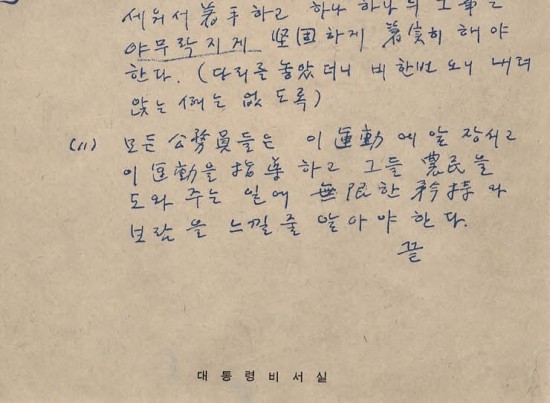 세워서 着手하고 하나 하나의
야무락지게 坚固하게 着實히 해야
한다. (다리를 놓았더니 비 한번 오니 내려
앉는 例는 없도록)
(11) 모든 公務員들은 이 運動에 앞장서고
이 運動을 指導하고 그들 農民을
도와주는 일에 無限한 矜持와
보람을 느낄줄 알아야한다.
끝
대통령비서실